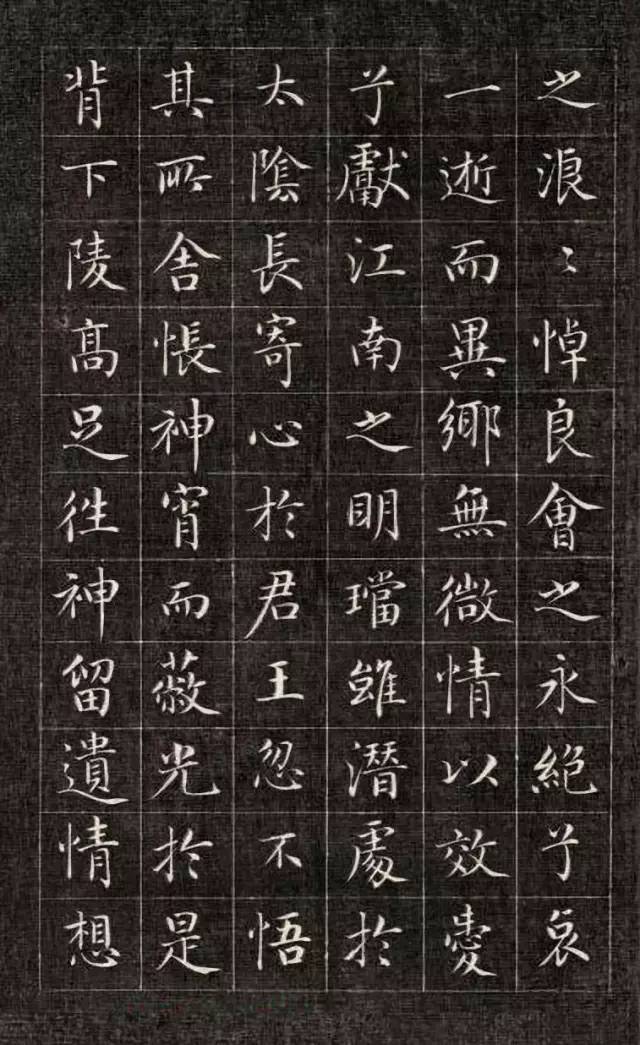 之浪〻悼良會之永絕兮哀
一逝而異鄉無微情以效愛
兮獻江南之明璫雖潛處於
太陰長寄心於君王忽不悟
其所舍悵神宵而蔽光於是
背下陵高足往神留遺情想